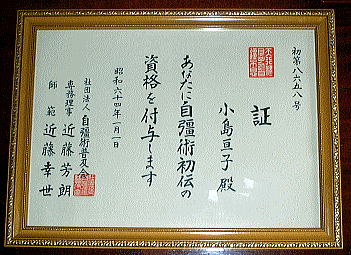 初第八六五八号
証
小島亘子殿
あなたに自彊術初伝の
資格を付与します
昭和六十四年一月一日
社団法人自彊術普及会
専務理事近藤芳朗
師範近藤幸世